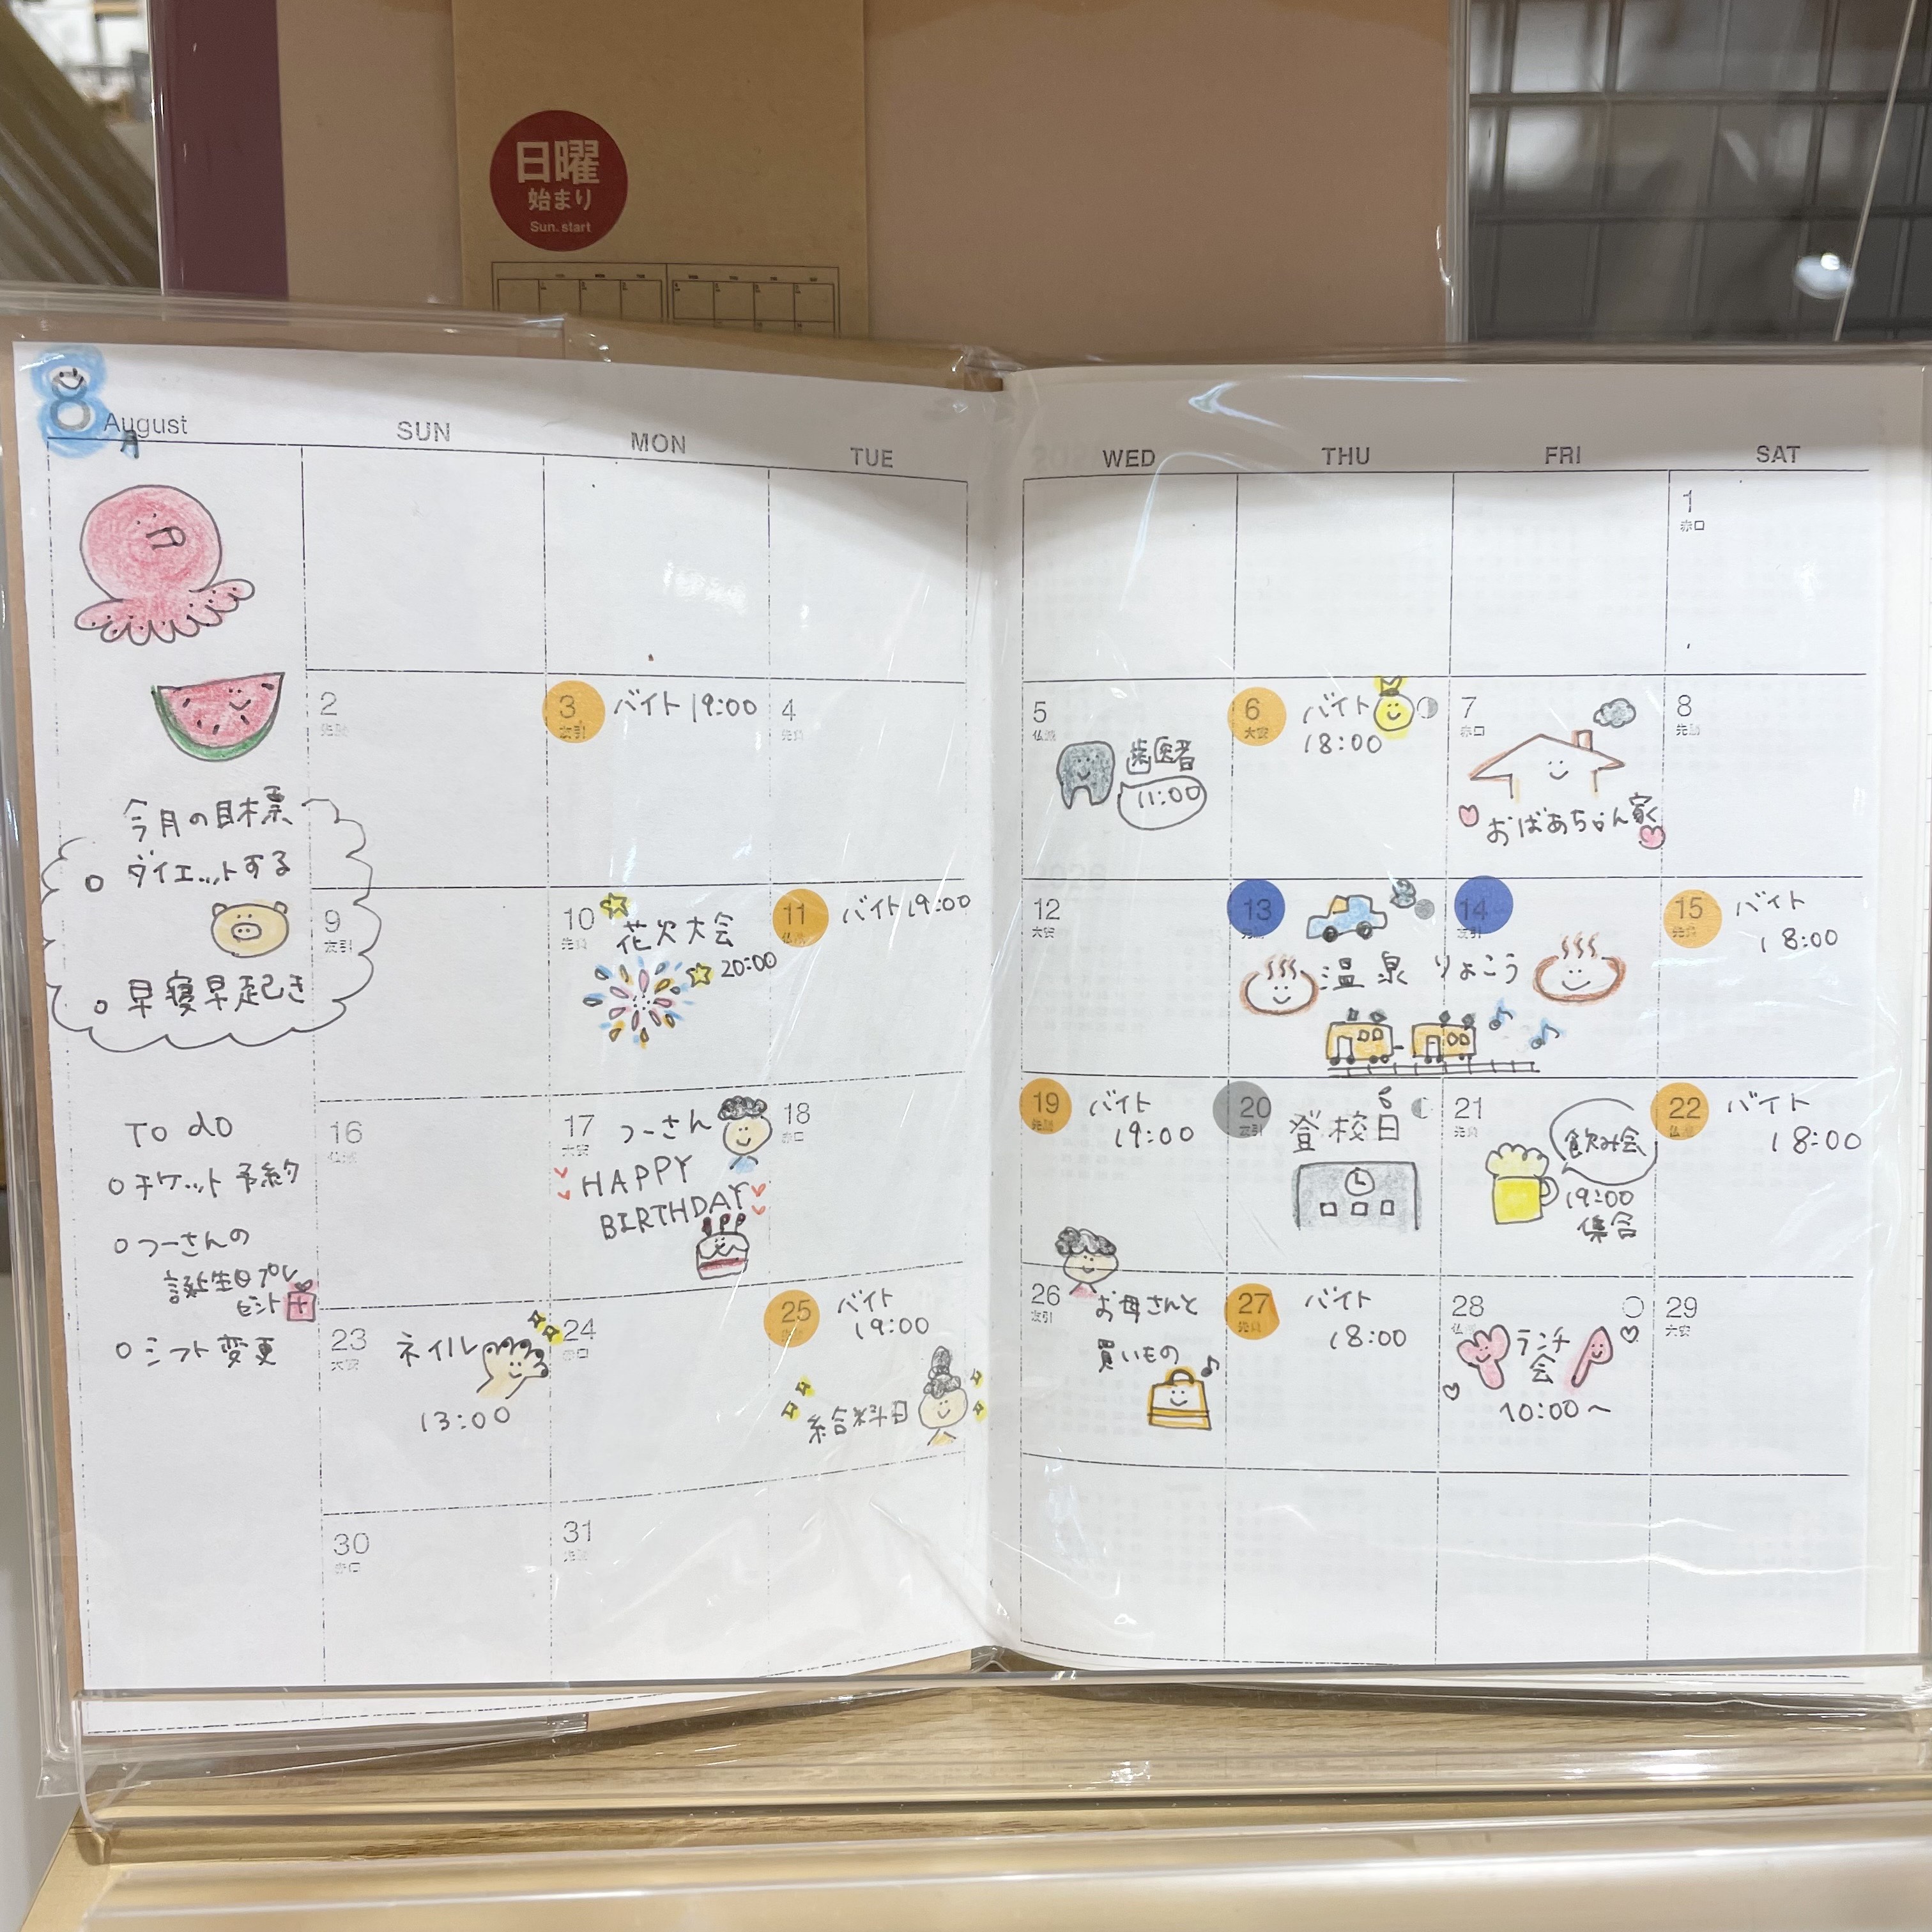 日曜
始まり
Sun. start
8
August
月
SUN
MON
TUE
WED
THU
FRI
SAT
今月の目標
○ ダイエットする
○ 早寝早起き
To do
○ チケット予約
○ つーさんの
誕生日プレ
ゼント
○ シフト変更
1
赤口
2
3
友引
バイト 19:00
4
5
歯医者
11:00
6
大安
バイト
18:00
7
赤口
おばあちゃん家
8
9
友引
10
花火大会
20:00
11
バイト 19:00
12
大安
13
温泉 りょこう
14
友引
15
バイト
18:00
16
17
大安
つーさん
HAPPY
BIRTHDAY
18
赤口
19
バイト
19:00
20
友引
登校日
21
飲み会
19:00
集合
22
バイト
18:00
23
大安
ネイル
13:00
24
赤口
25
バイト
19:00
給料日
26
友引
お母さんと
買いもの
27
バイト
18:00
28
ランチ
会
10:00〜
29
大安
30
赤口
31